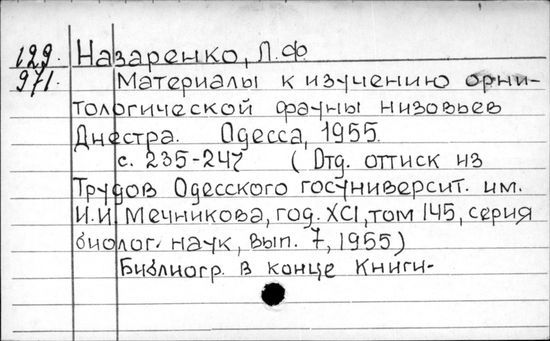 129. Назаренко, Л.Ф.
971. Материалы к изучению орни-
тологической фауны низовьев
Днестра. Одесса, 1955.
с. 235-247 (Отд. оттиск из
Трудов Одесского госуниверсит. им.
И.И. Мечникова, год. XCI, том 145, серия
биолог. наук, вып. 7, 1955)
Библиогр. в конце книги.